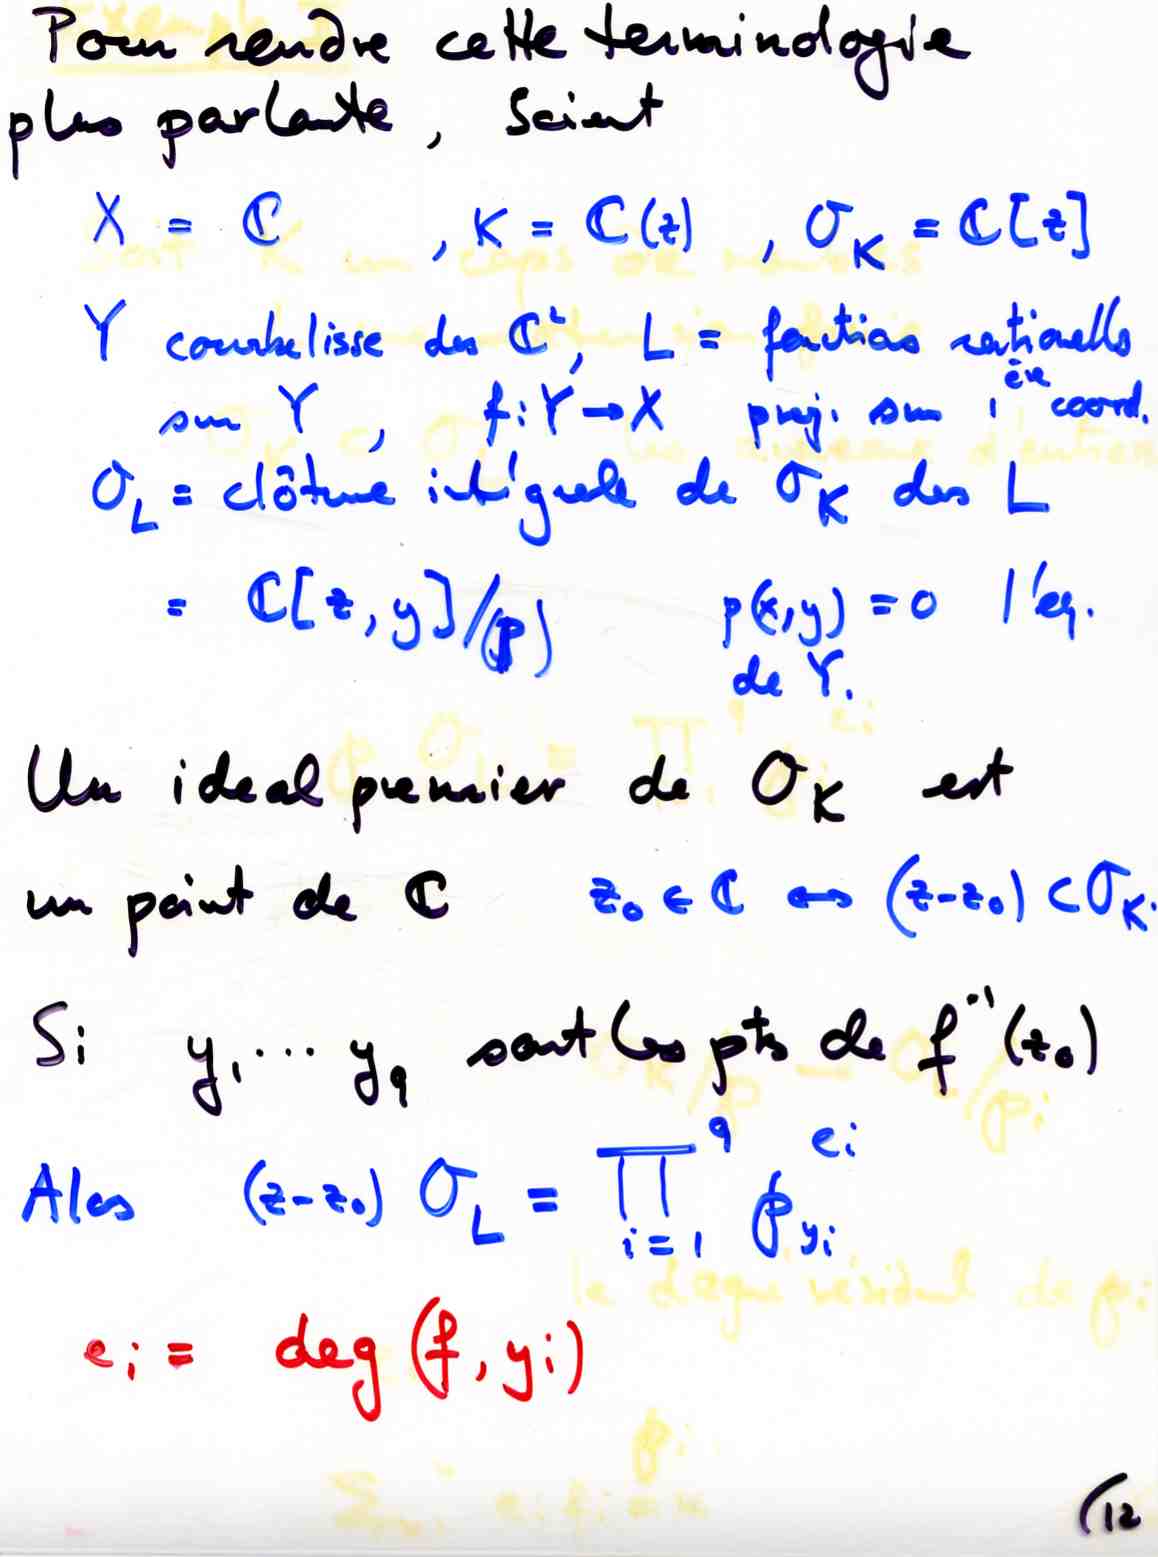 Pour rendre cette terminologie
plus parlante, Soient
X = ℂ , K = ℂ(z) , O_K = ℂ[z]
Y courbe lisse ds ℂ², L = fonctions rationelles
sur Y , f: Y → X proj. sur 1ère coord.
O_L = clôture intégrale de O_K ds L
= ℂ[z, y]/(p) p(x,y) = 0 l'eq.
de Y.
Un ideal premier de O_K est
un point de ℂ z₀ ∈ ℂ ↔ (z-z₀) ⊂ O_K.
Si y₁ ... y_q sont les pts de f⁻¹(z₀)
Alors (z-z₀) O_L = ∏_{i=1}^q p_{y_i}^{e_i}
e_i = deg(f, y_i)
(12